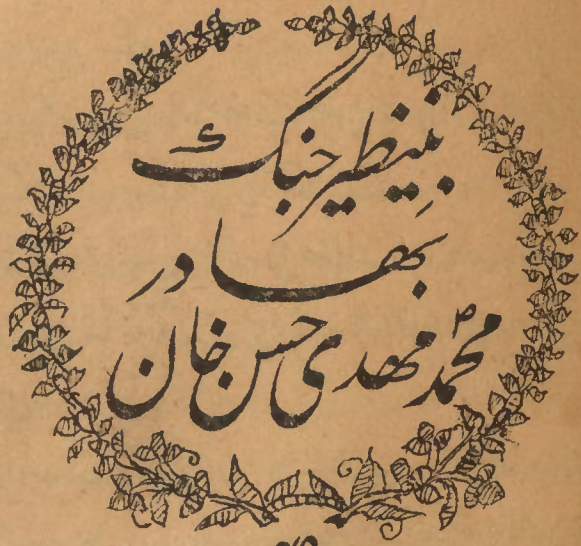 بینظیر جنگ
بهادر
محمد مهدی حسن خان